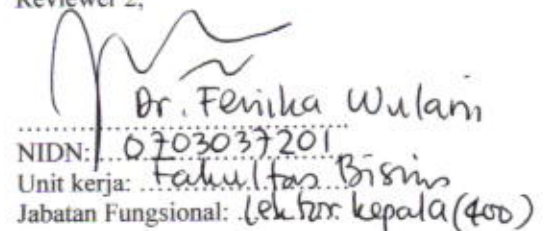 Reviewer 2,
Dr. Fenika Wulani
NIDN: 0703037201
Unit kerja: Fakultas Bisnis
Jabatan Fungsional: Lektor Kepala (400)